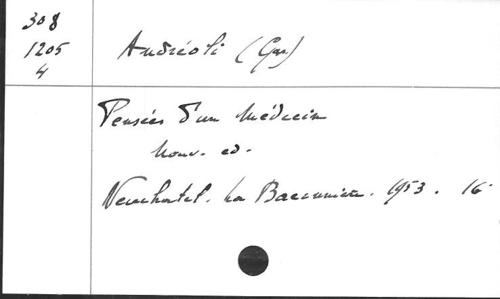 308
1205
4
Andréoli (Gas)
Pensées d'un Médecin
Nouv. ed.
Neuchatel. La Baconnière. 1953. 16°